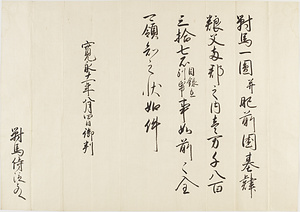 對馬一國并肥前國基肄
養父兩郡之内壹万千八百
三拾七石 目録在別帋 事如前々全
可領知之状如件
寛永十一年八月四日御判
對馬侍従殿